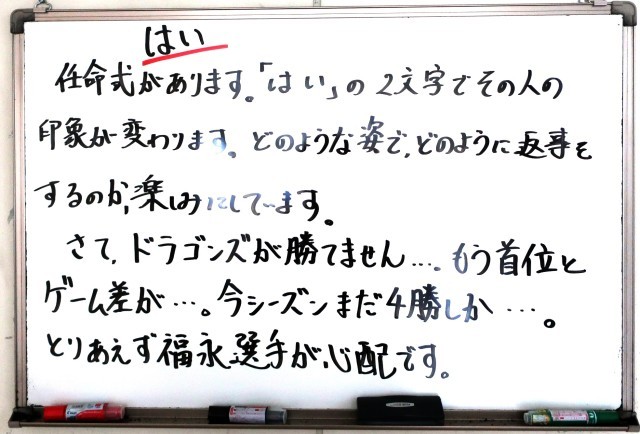 はい
任命式があります。「はい」の2文字でその人の
印象が変わります。どのような姿で、どのように返事を
するのか、楽しみにしています。
さて、ドラゴンズが勝てません…。もう首位と
ゲーム差が…。今シーズンまだ4勝しか…。
とりあえず福永選手が心配です。